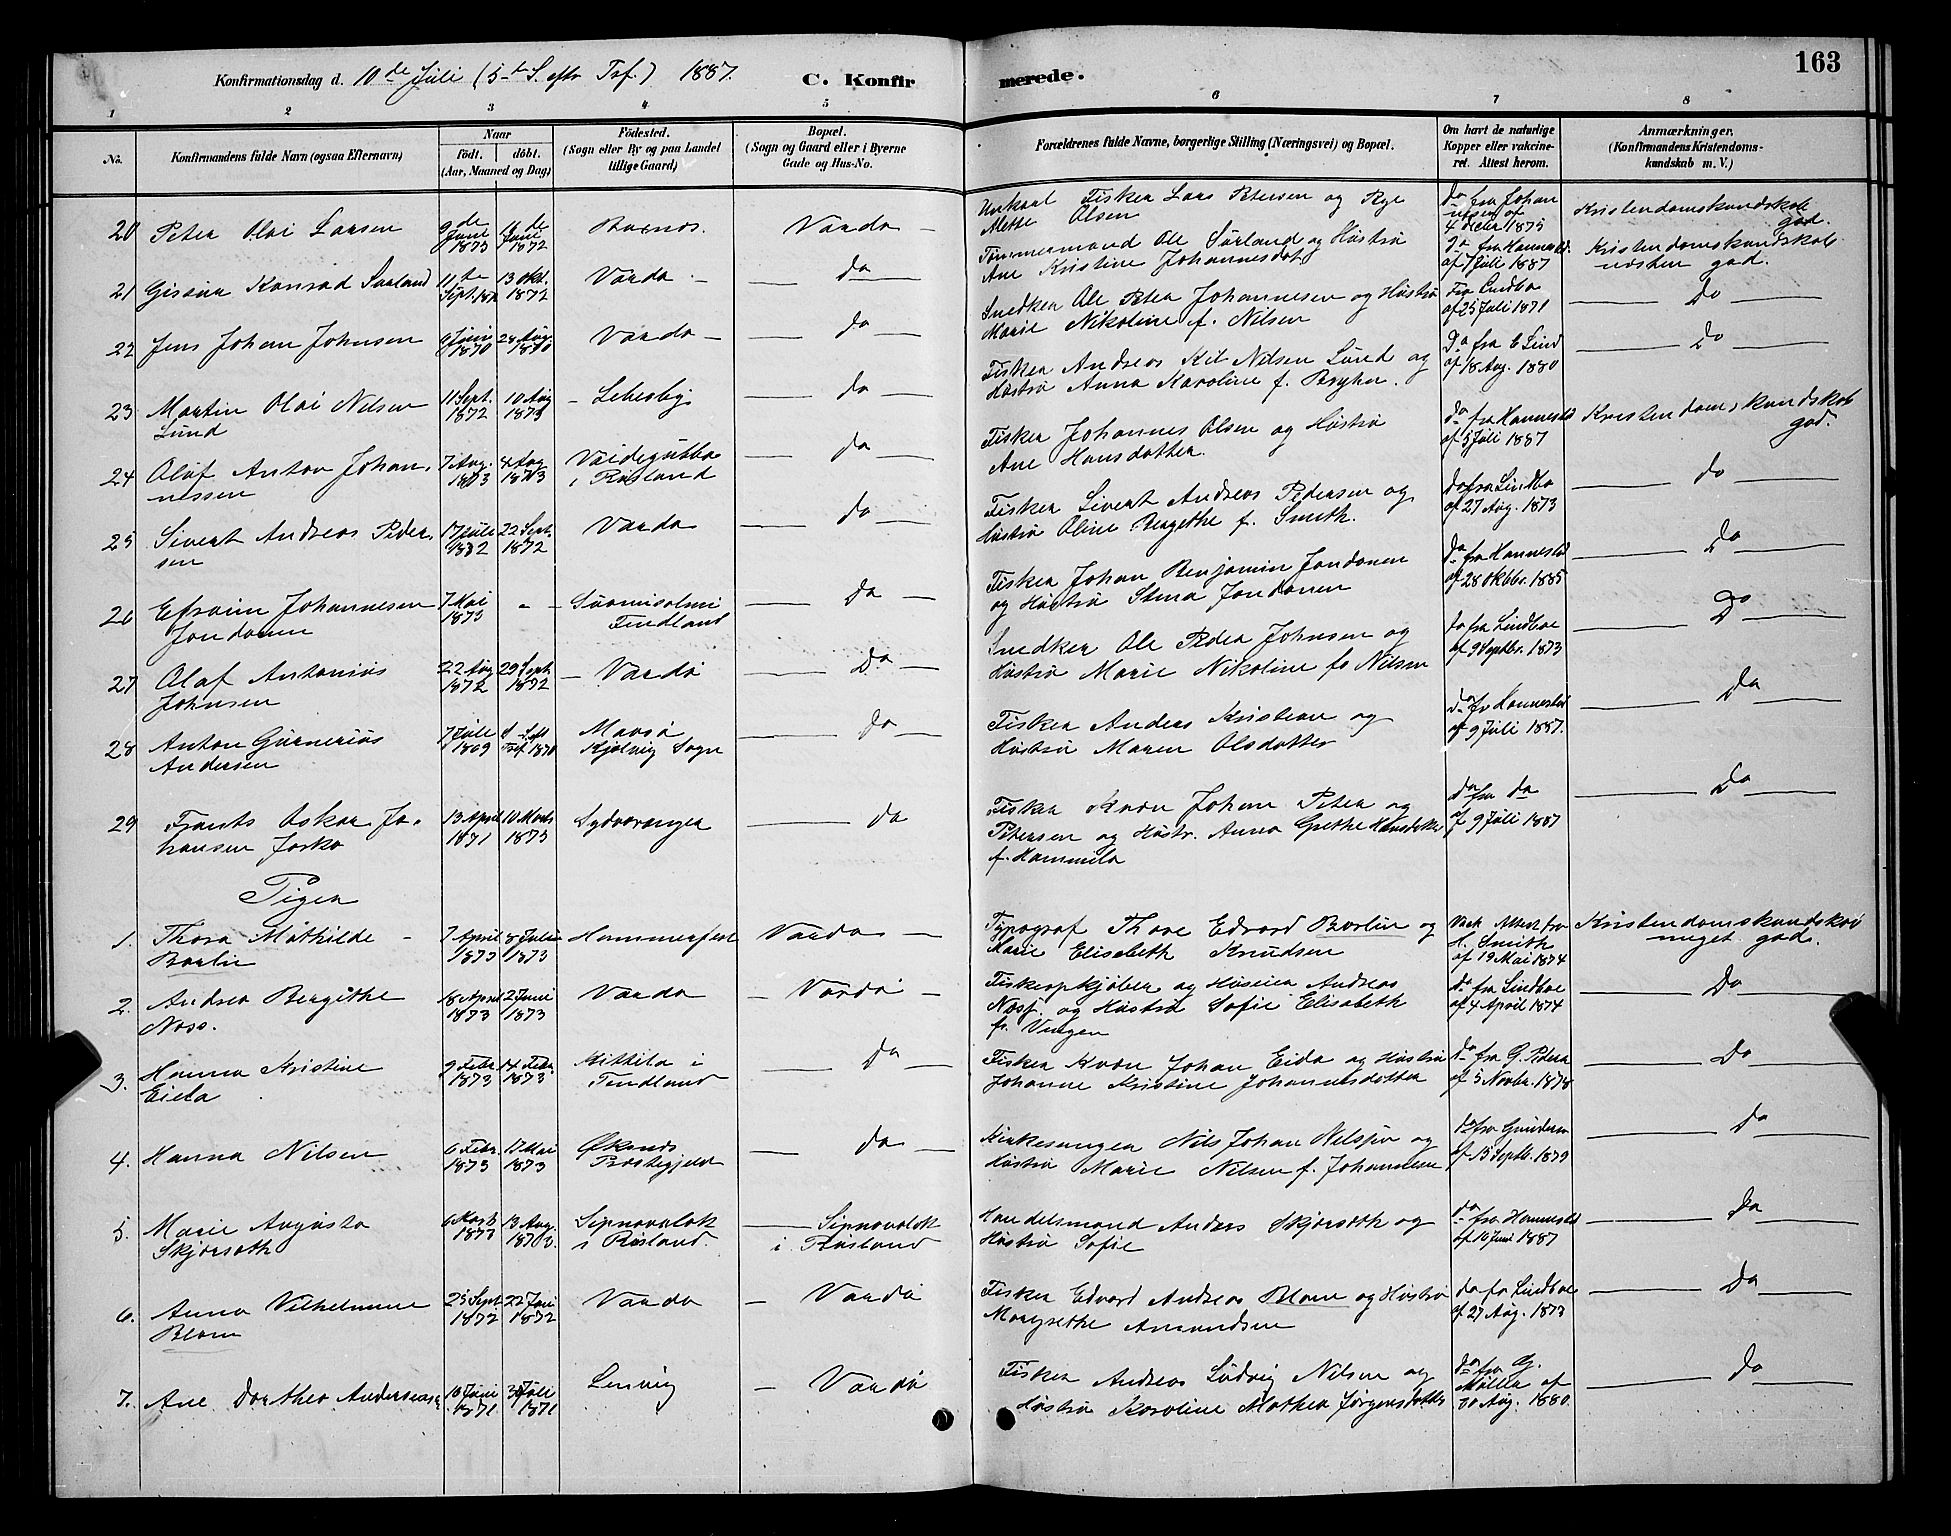 163
Konfirmationsdag d. 10de Juli (5te S. eftr Tref.) 1887.
C. Konfirmerede.
1 2 3 4 5 6 7 8
No. Konfirmandens fulde Navn (ogsaa Efternavn) Naar födt. döbt. (Aar, Maaned og Dag) Födested. (Sogn eller By og paa Landet tillige Gaard) Bopæl. (Sogn og Gaard eller i Byerne Gade og Hus-No. Forældrenes fulde Navne, borgerlige Stilling (Næringsvei) og Bopæl. Om havt de naturlige Kopper eller vaccineret. Attest herom. Anmærkninger. (Konfirmandens Kristendomskundskab m. V.)
20 Peter Olai Larsen 9de Juni 1873 Vardø Fisker Lars Petersen og
Mette Olsen Kristendomskundskab god.
21 Gissur Konrad Sørland 11te Sept. 13 Okt. 1872 Vardø do Tømmermand Ole Sørland og Hustru
Ane Kristine Johannesdot do fra Hannestd. af 7 Juli 1887 Kristendomskundskab næsten god.
22 Jens Johan Johnsen 9 Juni 1870 28 Aug. 1870 Vardø do Snedker Ole Peter Johannesen og Hustru
Marie Nikoline f. Nilsen Fra Lindbo af 25 Juli 1871 do
23 Martin Olai Nilsen
Lund 11 Sept. 1872 10 Aug 1873 Lebesby do Fisker Andreas Kil Nilsen Lund og
Hustru Anna Karoline f. do fra E Lind af 18 Aug. 1880 do
24 Olaf Anton Johannessen 7 Aug. 1873 Vaidegubba
i Rusland do Fisker Johannes Olsen og Hustru
Ane Hansdatter do fra Hannestd af 5 Juli 1887 Kristendomskundskab god.
25 Sivert Andreas Pedersen 17 Juli 1872 22 Sept. 1872 Vardø do Fisker Sivert Andreas Pedersen og
Hustru Oline Bergethe f. Smith. do fra Lindbo af 27 Aug. 1873 do
26 Efraim Johannesen
Jondanen 7 Mai 1873 - Suomisalmi
Findland do Fisker Johan Benjamin Jondanen
og Hustru Stina Jondanen do fra Hannestd af 28 Oktbr. 1885 do
27 Olaf Antonius
Johnsen 22 Aug 1872 29 Sept. 1872 Vardø do Snedker Ole Peder Johnsen og
Hustru Marie Nikoline f. Nilsen do fra Lindboe af 9 Septbr. 1873 do
28 Anton Gunerius
Andersen 7 Juli 1869 Tref. 1870 Maasø
Kjelvig Sogn do Fisker Anders Kristian og
Hustru Maren Olsdatter do fr Hannestd af 9 Juli 1887. do
29 Frants Oskar Johansen Jorko 13 April 1871 10 Marts 1873 Sydvaranger do Fisker Kvæn Johan Peter
Petersen og Hustr. Anna Grethe Hansdatter
f. Hammila do fra do af 9 Juli 1887 do
Piger
1. Thora Mathilde
Barlie 7 April 1873 8 Juli 1873 Hammerfest Vardø Typograf Thore Edvard Barlie og
Marie Elisabeth Knudsen Vack Attest fra H. Smith af 19 Mai 1874 Kristendomskundskab meget god.
2. Andrea Bergithe
Noss. 18 April 1873 2 Juni 1873 Vardø Vardø Fiskeopkjøber og Huseier Andreas
og Hustru Sofie Elisabeth
f. Vingen do fra Lindboe af 4 April 1874 do
3. Hanna Kristine
Eida 9 Febr. 1873 14 Febr. 1873 Kittila i
Findland do Fisker Kvæn Johan Eida og Hustru
Johanne Kristine Johannesdatter do fra G. Peders af 5 Novbr. 1878 do
4. Hanna Nilsen 6 Febr. 1873 17 Mai 1873 Øksnes
Præstegjeld do Kirkesanger Nils Johan Nilsen og
Hustru Marie Nilsen f. Johannesen do fra Gunderso af 15 Septb. 1879 do
5. Marie Augusta
Skjørseth 6 Marts 1873 13 Aug. 1873. Sipnavolok
i Rusland. Sipnavolok
i Rusland Handelsmand Anders Skjørseth og
Hustru Sofie do fra Hannestd af 10 Juni 1887 do
6. Anna Vilhelmine
Blom 25 Sept 1872 22 1872 Vardø Vardø Fisker Edvard Andreas Blom og Hustru
Margrethe Amundsen do fr Lindboe af 27 Aug. 1873 do
7. Ane Dorthea Andreasen 10 Juni 1871 30 Juli 1871 Lenvig Vardø Fisker Andreas Ludvig Nilsen og
Hustru Karoline Mathea Jørgensdatter do fra G. Møller af 30 Aug. 1880. do